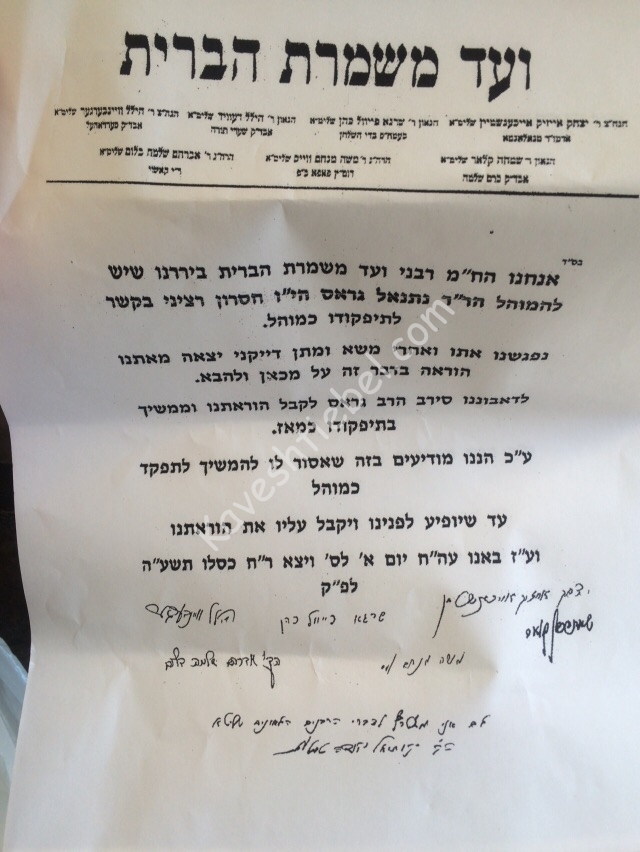 ועד משמרת הברית
הגה"צ ר' יצחק אייזיק אייכענשטיין שליט"א הגאון ר' שרגא פייוול כהן שליט"א הגאון ר' הילל דעוויד שליט"א הגה"צ ר' הילל וויינבערגער שליט"א
אדמו"ר מגאלאנטא בעמח"ס בדי השלחן אבד"ק שערי תורה אבד"ק סערדאהעל
הגאון ר' שמחה קלאר שליט"א הרה"ג ר' משה מנחם ווייס שליט"א הרה"ג ר' אברהם שלמה בלום שליט"א
אבד"ק כרם שלמה דומ"ץ פאפא ב"פ ר"י קאשוי
בס"ד
אנחנו הח"מ רבני ועד משמרת הברית ביררנו שיש
להמוהל הר"ר נתנאל גראס הי"ו חסרון רציני בקשר
לתיפקודו כמוהל.
נפגשנו אתו ואחרי משא ומתן דייקני יצאה מאתנו
הוראה בדבר זה על מכאן ולהבא.
לדאבוננו סירב הרב גראס לקבל הוראתנו וממשיך
בתיפקודו כמאז.
ע"כ הננו מודיעים בזה שאסור לו להמשיך לתפקד
כמוהל
עד שיופיע לפנינו ויקבל עליו את הוראתנו
וע"ז באנו עה"ח יום א' לס' ויצא ר"ח כסלו תשע"ה
לפ"ק
יצחק אייזיק אייכענשטיין
שרגא פייוול כהן
הלל וויינבערגער
משה מנחם
הק' אברהם שלמה בלום
גם אני מצטרף לדברי הרבנים הגאונים שליט"א
הק' יקותיאל יהודה
KaveshTiebel.com